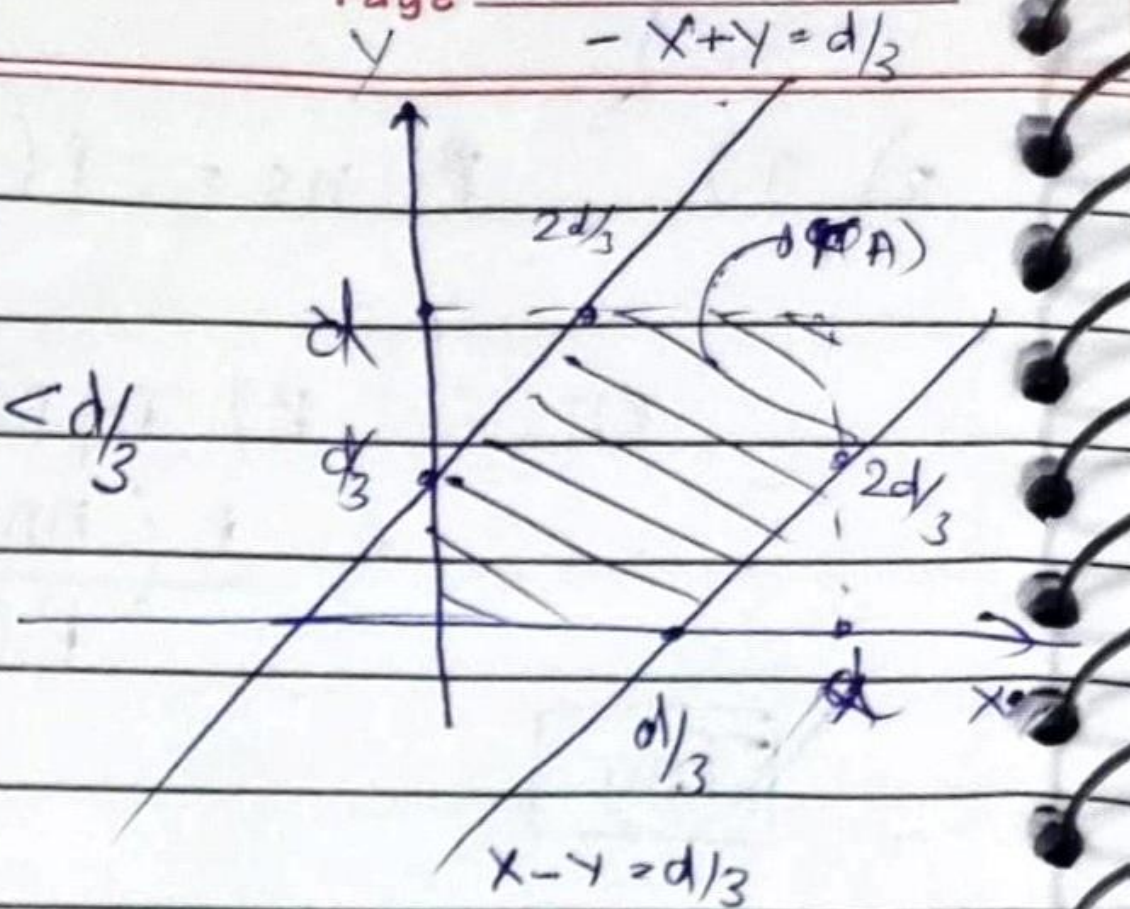 Page
Y
- X+Y = d/3
2d/3
A)
d
< d/3
d/3
2d/3
d
X
d/3
X-Y = d/3